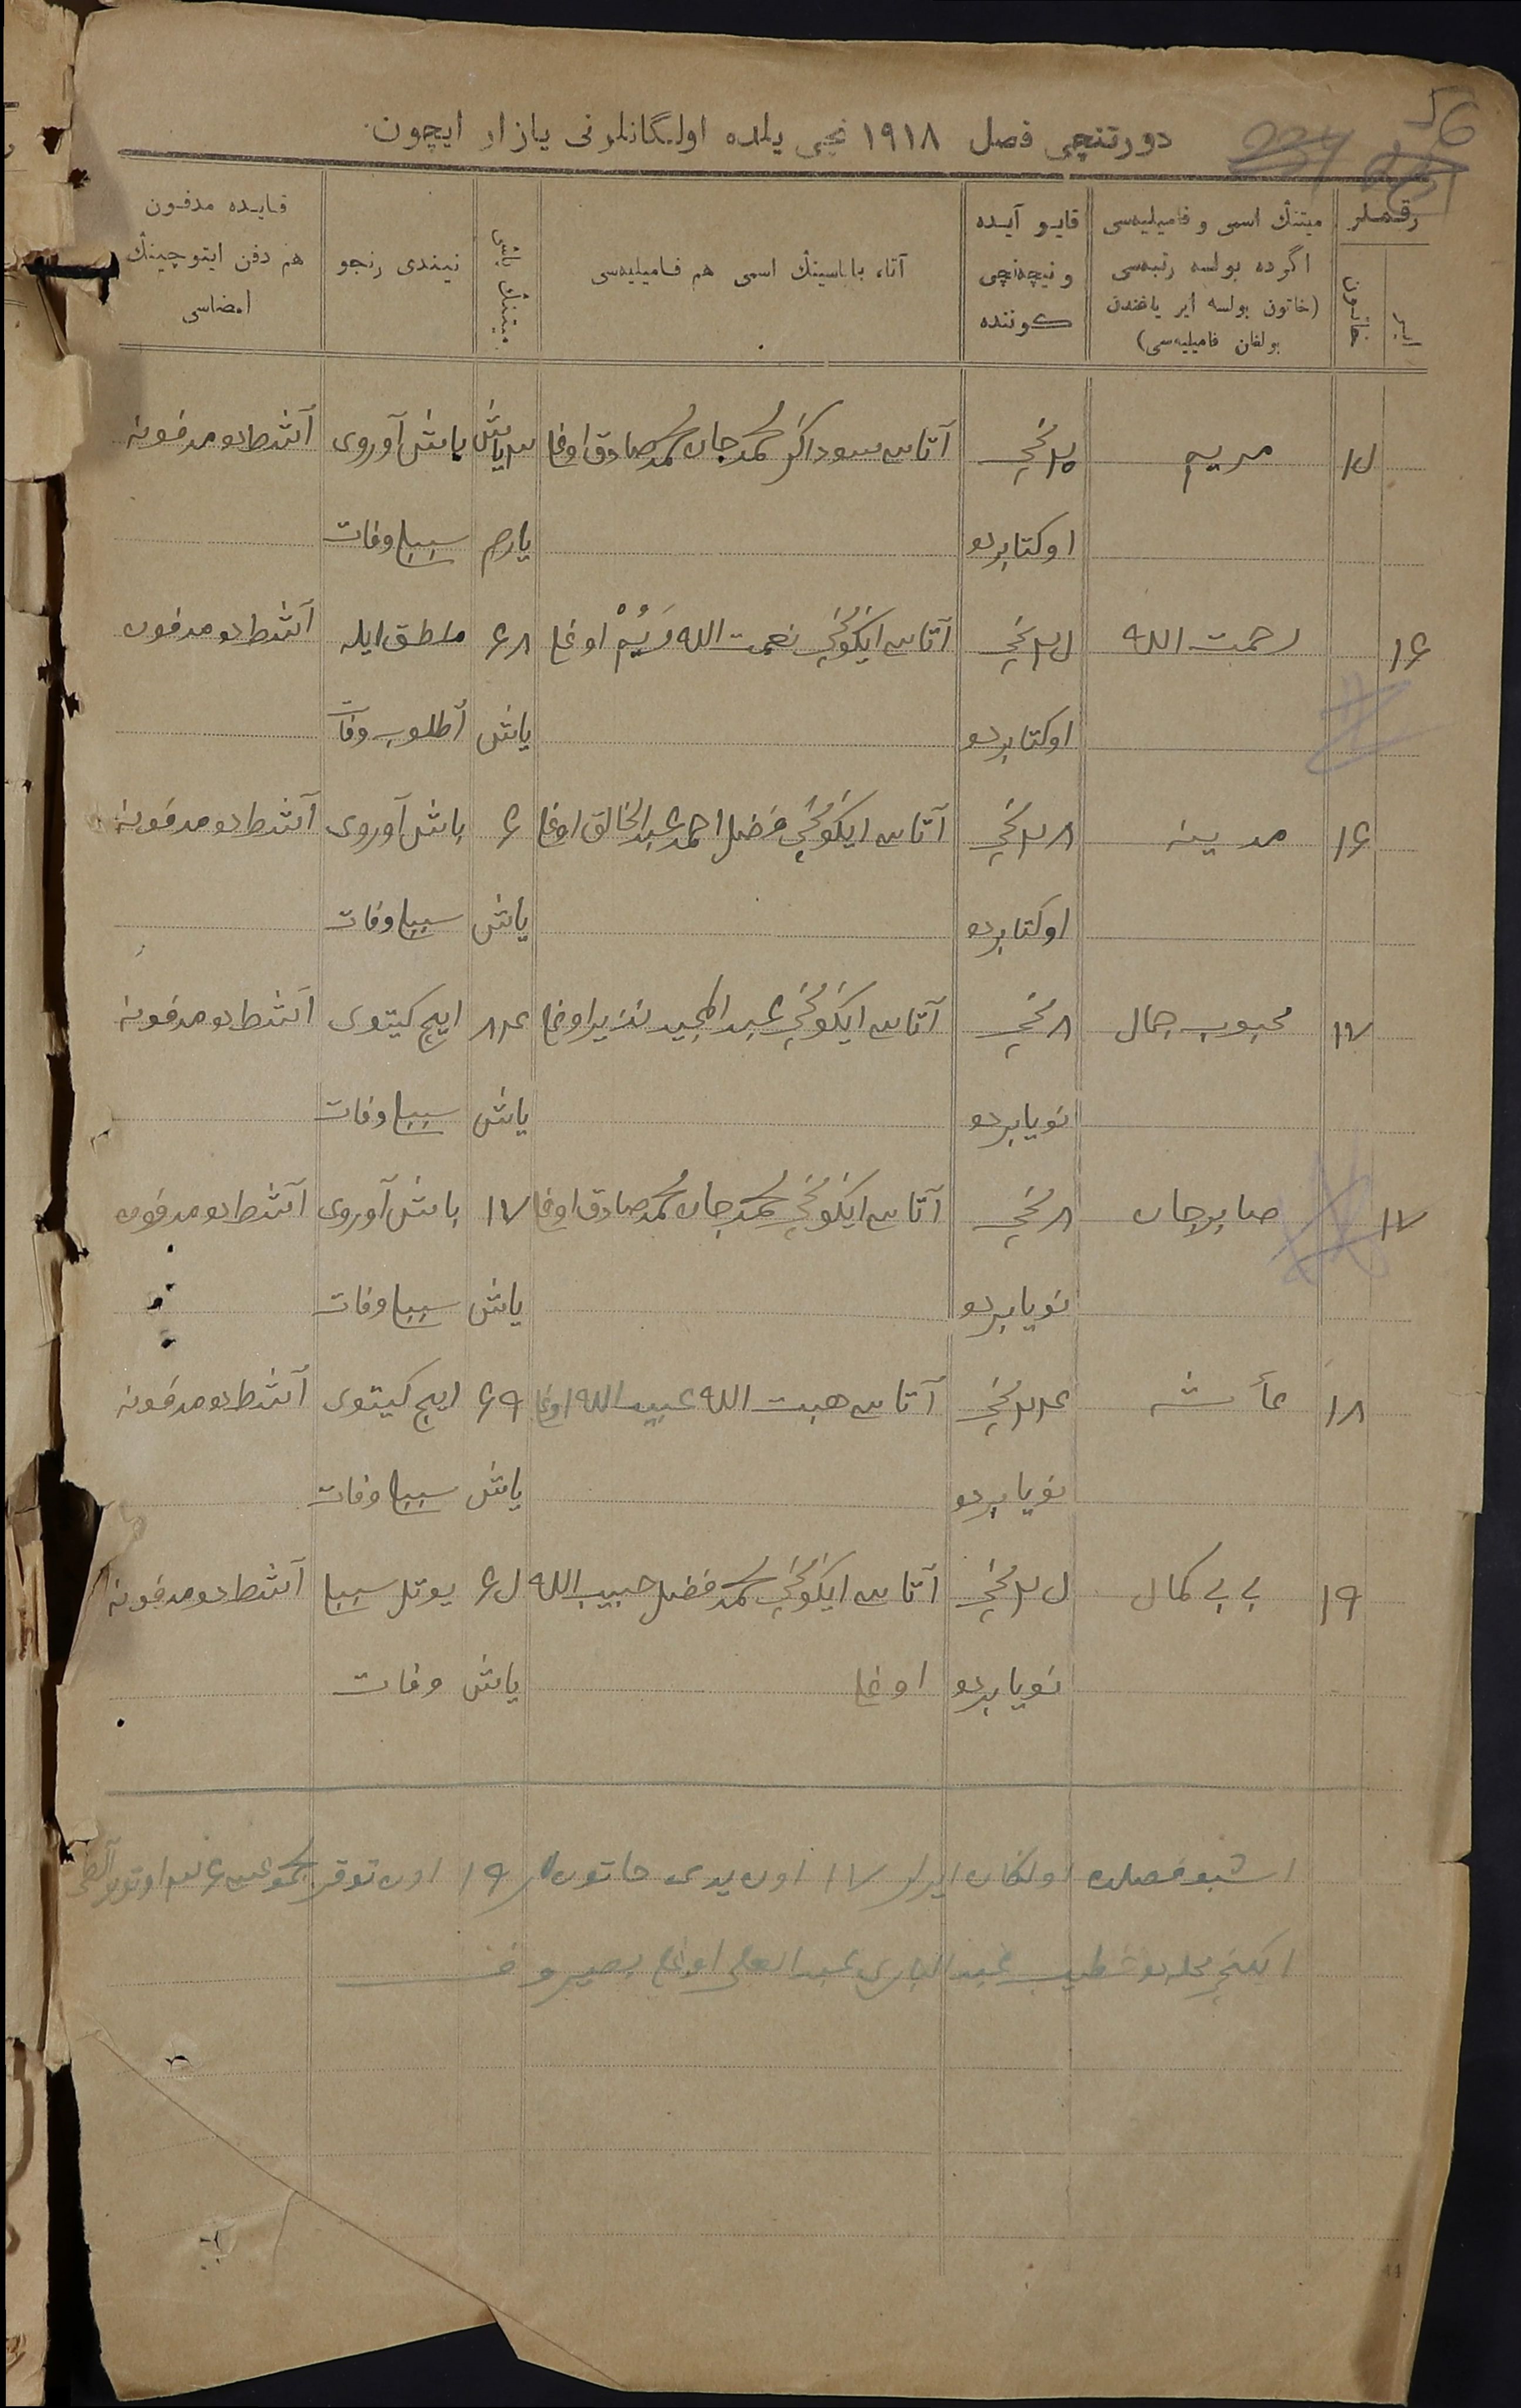 56
234
دورتنچی فصل ۱۹۱۸ نچی یلده اولگانلرنی یازار ایچون
رقملر
ایرلر
خاتون
میتنڭ اسمی و فامیلیه‌سی
اگرده بولسه رتبه‌سی
(خاتون بولسه ایر یاغندن
بولغان فامیلیه‌سی)
قایو آیده
و نیچه‌نچی
کوننده
آتا، باباسینڭ اسمی هم فامیلیه‌سی
میتنڭ یاشی
نیندی رنجو
قایده مدفون
هم دفن ایتوچینڭ
امضاسی
مریم آتاسی سوداگر محمدجان محمدصادق اوغلی یاش باش آوروی آتشطاده مدفونه
اوکتابرده یارم سببلی وفات
۱۶ رحمت الله آتاسی ایگونچی نعمت الله اوغلی ۶۸ آتشطاده مدفون
اوکتابرده یاش وفات
۱۶ مدینه ۲۸نچی آتاسی ایگونچی فضل احمد عبدالخالق اوغلی ۶ باش آوروی آتشطاده مدفونه
اوکتابرده یاش سببلی وفات
۱۷ محبوب جمال ۸نچی آتاسی ایگونچی عبدالمجید نذیر اوغلی ۸۴ ایچ کیتوی آتشطاده مدفونه
نویابرده یاش سببلی وفات
۱۷ صابرجان ۸نچی آتاسی ایگونچی محمدجان محمدصادق اوغلی ۱۷ باش آوروی آتشطاده مدفون
نویابرده یاش سببلی وفات
۱۸ عائشه ۲۴نچی آتاسی هبت الله عبید الله اوغلی ۶۹ ایچ کیتوی آتشطاده مدفونه
نویابرده یاش سببلی وفات
۱۹ بی بی کمال ۲۵نچی آتاسی ایگونچی محمد فضل حبیب الله ۶۵ یوتل سببلی آتشطاده مدفونه
نویابرده اوغلی یاش وفات
اشبو فصلده اولگان ایرلر ۱۷ اون یدی خاتونلر ۱۹ اون توقز مجموعسی ۳۶ اوتوز آلطی
ایکنچی محله ده خطیب عبدالباری عبدالعلی اوغلی بصیروف